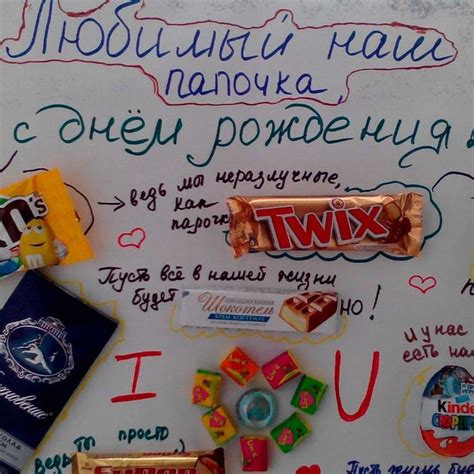 Любимый наш
папочка,
с днём рождения
→ ведь мы неразлучные,
как
парочка
TWIX
m's
Пусть всё в нашей жизни
будет
Шокотель
но!
I
U
и у нас
есть
Kinder
Сюрприз
ведь ты просто
Пусть жизнь